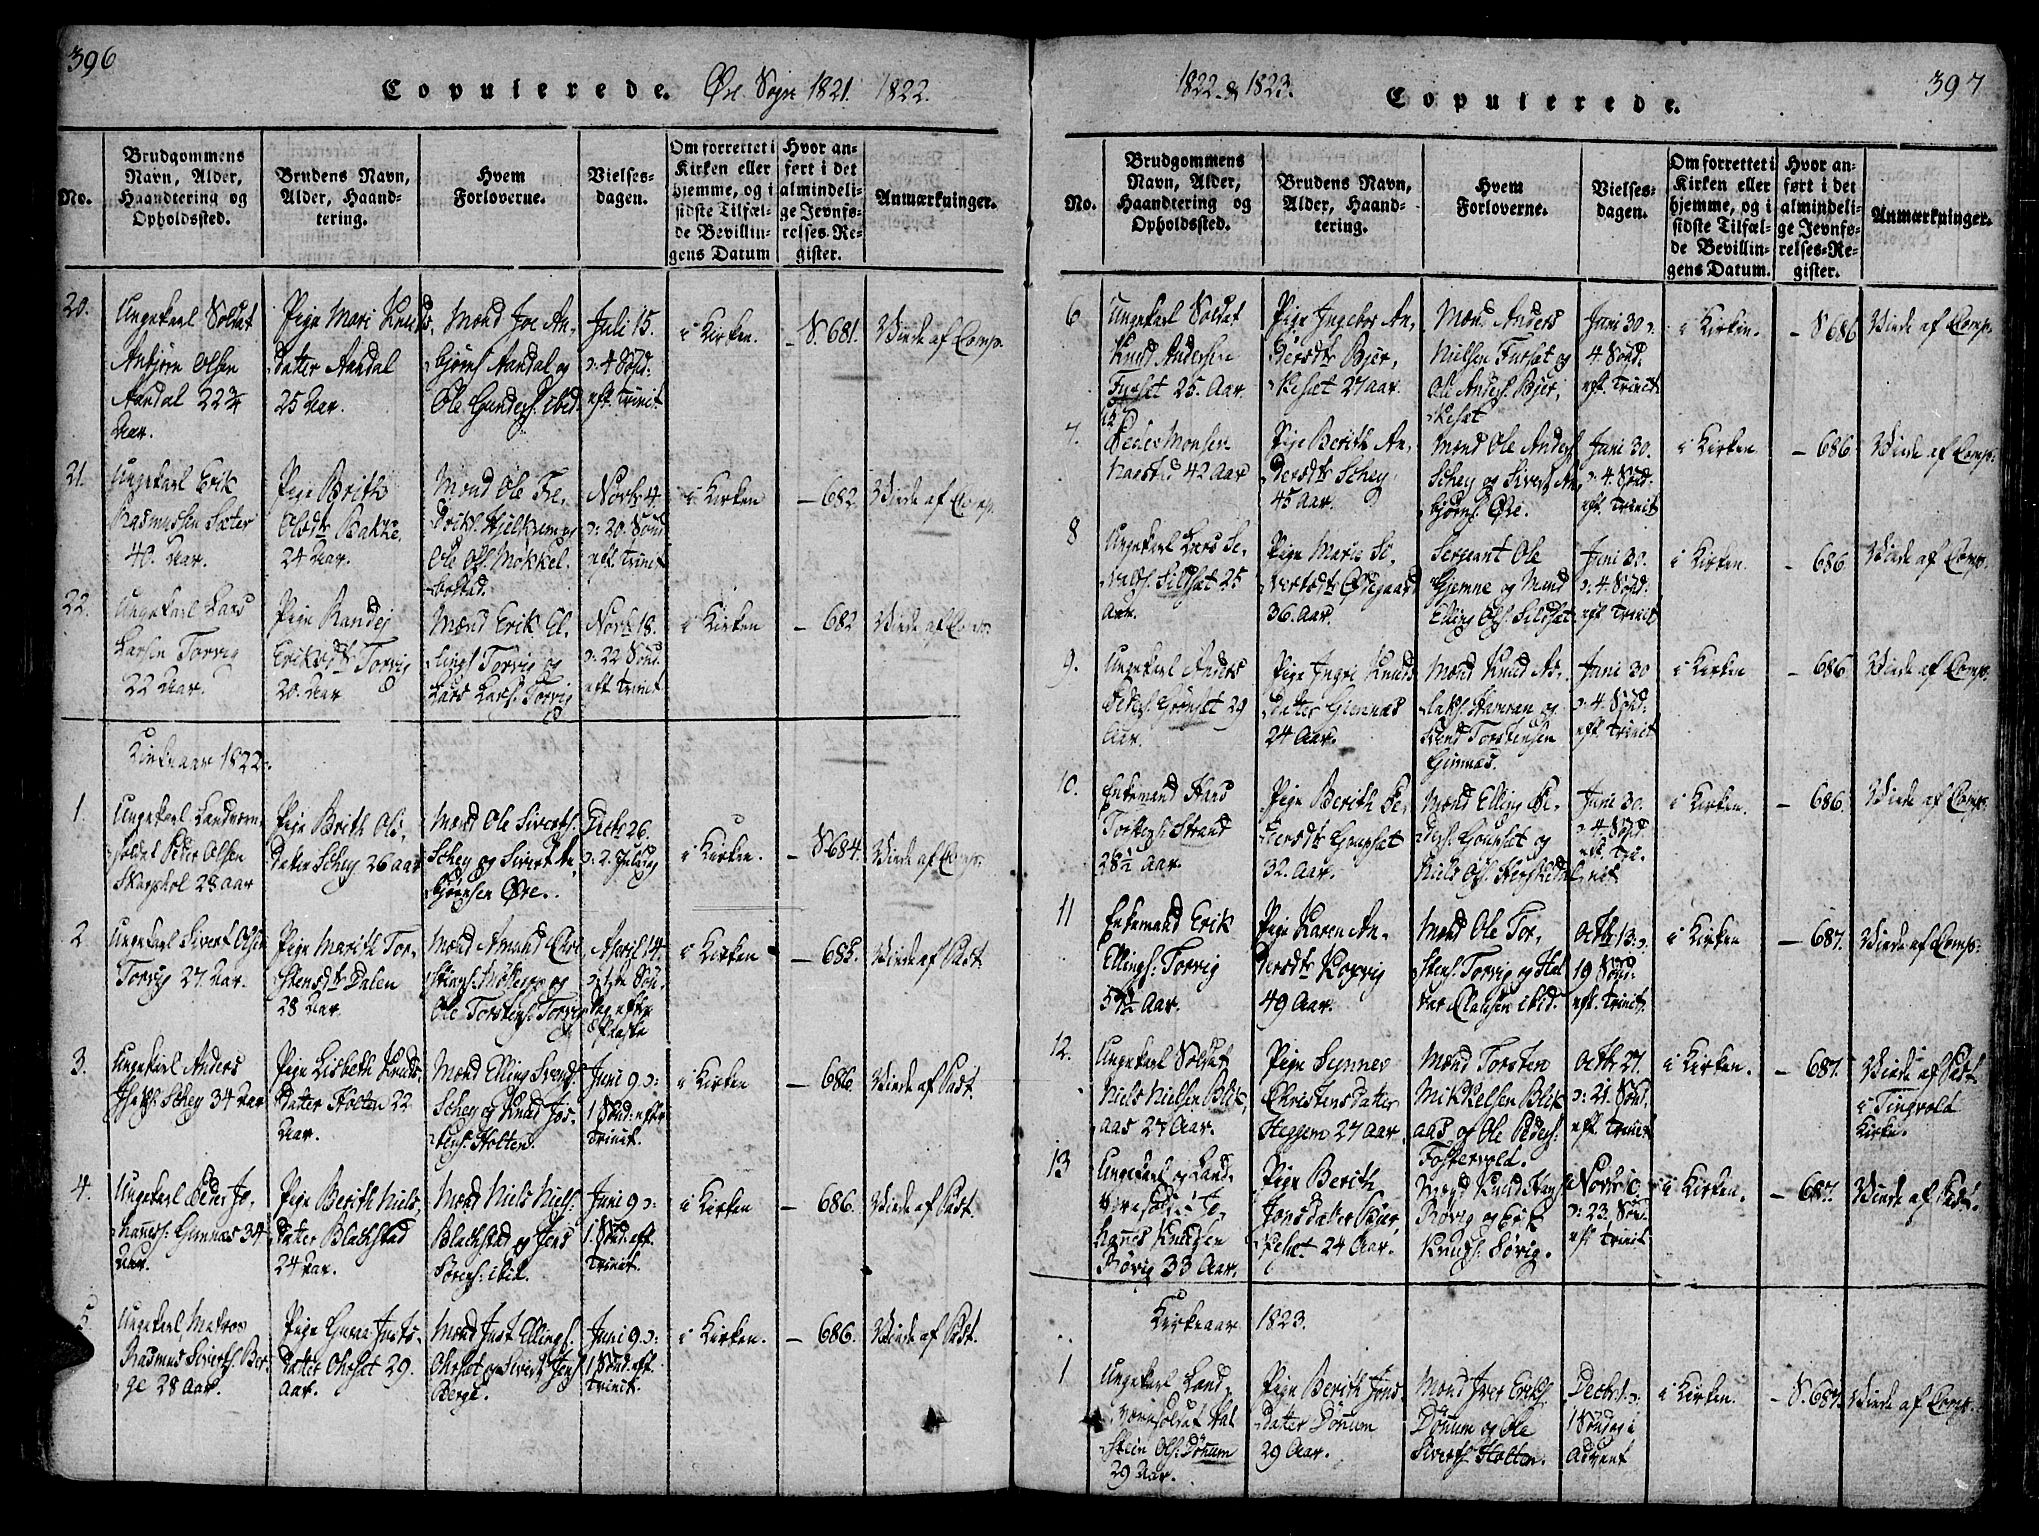 396
Copulerede. Øre Sogn 1821. 1822.
No.
Brudgommens
Navn, Alder,
Haandtering og
Opholdssted.
Brudens Navn,
Alder, Haand-
tering.
Hvem
Forloverne.
Vielses-
dagen.
Om forrettet i
Kirken eller
hjemme, og i
sidste Tilfæl-
de Bevillin-
gens Datum
Hvor an-
ført i det
almindeli-
ge Jevnfø-
relses-Re-
gister.
Anmærkninger.
20.
Ungekarl Soldat
Anbjørn Olsen
Aandal 22¾
Aar.
Pige Mari Knuds
datter Aandal
25 Aar.
Mænd Joe An-
bjørns. Aandal og
Ole Gunders. ibid.
Juli 15.
ɔ: 4 Sønd:
eft. Trinit.
i Kirken.
S. 681.
Viede af Comp.
21.
Ungekarl Erik
Rasmussen Sæter
40. Aar.
Pige Brith
Olsdtr Bakke.
24 Aar.
Mænd Ole Fre-
driks. Hjelkrem og
Ole Ols. Mökkel-
bostad.
Novbr 4.
ɔ: 20. Sønd
eft. Trinit
i Kirken
- 682.
Viede af Comp.
22.
Ungekarl Lars
Larsen Torvig
22 Aar.
Pige Randej
Eriksdtr Torvig
20. Aar
Mænd Erik El-
lings. Torvig og
Lars Lars. Torvig
Novbr 18.
ɔ: 22 Sønd.
eft. Trinit.
i Kirken
- 682
Viede af Comp.
Kirkeaar 1822.
1.
Ungekarl Landværn-
soldat Peder Olsen
Skarphol 28 aar
Pige Brith Ols-
datter Schey 26 aar
Mænd Ole Siverts.
Schey og Sivert An-
bjørnsen Øre.
Decbr 26.
ɔ: 2. Juledag
i Kirken.
- S 684.
Viede af Comp.
2
Ungekarl Sivert Olsen
Torvig 27. Aar.
Pige Marith Tor-
stensdtr Dalen
28 Aar
Mænd Amund Chri-
stians. Moberge og
Ole Torstens. Torvig
April 14.
ɔ: 1ste Søn-
dag efter
Paaske
i Kirken
- 685.
Viede af Past.
3.
Ungekarl Anders
Schey 34 Aar
Pige Lisbeth Knuds-
datter Holten 22
Aar.
Mænd Elling Svends.
Schey og Knud Jos-
tens. Holten.
Juni 9 ɔ:
1 Sønd: efter
Trinit.
i Kirken
- 686.
Viede af Past.
4.
Ungekarl Peder Jo-
hanes. Gimnæs 34
Aar.
Pige Berith Niels
datter Blachstad
24 Aar.
Mænd Niels Niels.
Blachstad og Jens
Sörens. ibid.
Juni 9 ɔ:
1. Sønd: eft.
Trinit.
i Kirken
- 686.
Viede af Past.
5.
Ungekarl Matros
Rasmus Siverts. Ber-
ge 28 Aar.
Pige Guru Justs-
datter Ohrset 29.
Aar.
Mænd Just Ellings.
Ohrset og Sivert Jens.
Berge.
Juni 9 ɔ:
1 Sønd: eft.
Trinit.
i Kirken.
- 686.
Viede af Past.
1822. & 1823.
Copulerede.
397
No.
Brudgommens
Navn, Alder,
Haandtering og
Opholdssted.
Brudens Navn,
Alder, Haand-
tering.
Hvem
Forloverne.
Vielses-
dagen.
Om forrettet i
Kirken eller
hjemme, og i
sidste Tilfæl-
de Bevillin-
gens Datum.
Hvor an-
ført i det
almindeli-
ge Jevnfø-
relses-Re-
gister.
Anmærkninger.
6
Ungekarl Soldat
Knud Andersen
Furset 25. Aar
Pige Ingebor An-
dersdtr Bjer-
keset 27 aar.
Mænd Anders
Nielsen Furset og
Ole Anders. Bjer-
keset
Juni 30 ɔ:
4. Sønd:
eft. Trinit.
i Kirken.
- S 686
Viede af Comp.
7.
Peder Monsen
42 Aar
Pige Berith An-
dersdtr Schey
45 Aar.
Mænd Ole Anders.
Schey og Sivert An-
bjørns. Øre.
Juni 30.
ɔ: 4. Sønd:
eft. Trinit.
i Kirken
- 686
Viede af Comp.
8
Ungekarl Lars Si-
verts. Sildset 25
Aar.
Pige Marie Si-
vertsdtr Ødegaard
36. Aar.
Sergeant Ole
Gjemne og Mand
Elling Ols. Sildset.
Juni 30.
ɔ: 4. Sønd:
eft. Trinit
i Kirken.
- 686
Viede af Comp.
9.
Ungekarl Anders
Peders. Grönset 29
Aar.
Pige Ingri Knuds
datter Gimnæs
24 Aar.
Mænd Knud As-
laks. Hamran og
Svend Torstensen
Gimnæs.
Juni 30
ɔ: 4. Sønd:
eft. Trinit
i Kirken
- 686.
Viede af Comp.
10.
Enkemand Hans
Tostens. Strand
28½ Aar.
Pige Berith Pe-
dersdtr Goupset
32. Aar.
Mænd Elling Pe-
ders. Goupset og
Niels Ols. Herskedal
Juni 30.
ɔ: 4. Sønd:
eft. Tri-
nit
i Kirken.
- 686.
Viede af Comp.
11
Enkemand Erik
Ellings. Torvig
54½ Aar.
Pige Karen An-
dersdtr Korsvig
49 Aar.
Mænd Ole Tor-
stens. Torvig og Hal-
var Clausen ibid.
Octbr 13. ɔ:
19 Sønd:
eft. Trinit.
i Kirken
- 687.
Viede af Comp:
12.
Ungekarl Soldat
Niels Nielsen Blik-
aas 27 Aar.
Pige Synnev
Christensdatter
Heggem 27 Aar.
Mænd Torsten
Mikkelsen Blik
aas og Ole Peders.
Fostervold.
Octbr 27.
ɔ: 21. Sønd.
eft. Trinit
i Kirken.
- 687.
Viede af Past.
i Tingvold
Kirke.
13
Ungekarl og Land-
værnsoldat Jo-
hanes Knudsen
Rövig 33 Aar.
Pige Berith
Jonsdatter Bjer-
keset 24 Aar.
Mænd Knud Hans.
Rövig og Erik
Knuds. Sörvig.
Novbr 10.
ɔ: 23. Søn-
eft Trinit.
i Kirken.
- 687.
Viede af Past.
Kirkeaar 1823.
1
Ungekarl Land-
værnsoldat Hal
stein Ols. Dönum
29 Aar.
Pige Berith Jons
datter Dönum
29 Aar.
Mænd Iver Eriks.
Dönum og Ole
Siverts. Holten.
Decbr 1. ɔ:
1 Søndag i
Advent
i Kirken.
- S. 687.
Viede af Comp.